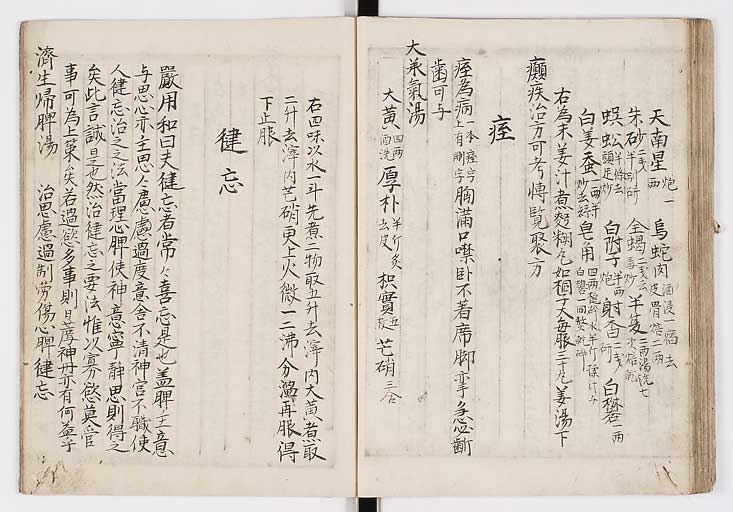 天南星 炮一两 烏蛇肉 酒浸一宿去皮骨焙二两
朱砂 半两研 全蝎 二戔去毒炒 半夏 二两湯洗七次焙乾
蜈蚣 半條去頭足炒 白附子 半两炮 射香 白礬 一两
白姜蚕 一两半炒去絲 皂角
右為末姜汁煮麪糊丸如梧子大每服三十丸姜湯下
癲疾治方可考愽覧衆方
痓
痓為病 一本痓字上有剛字 胸滿口噤卧不著席脚挛急必齘
歯可与
大承氣湯
大黄 四两酒洗 厚朴 半斤炙去皮 枳實 五枚 芒硝 三合
右四味以水一斗先煮二物取五升去滓内大黄煮取
二升去滓内芒硝更上火微一二沸分温再服得
下止服
健忘
嚴用和曰夫健忘者常々喜忘是也盖脾主意
与思心亦主思々慮過度意舎不清神宮不職使
人健忘治之之法當理心脾使神意寧静思則得之
矣此言誠是也然治健忘之要法惟以寡慾莫管
事可為上策矣若過慾多事則日虔神母亦有何益乎
濟生帰脾湯 治思慮過制勞傷心脾健忘